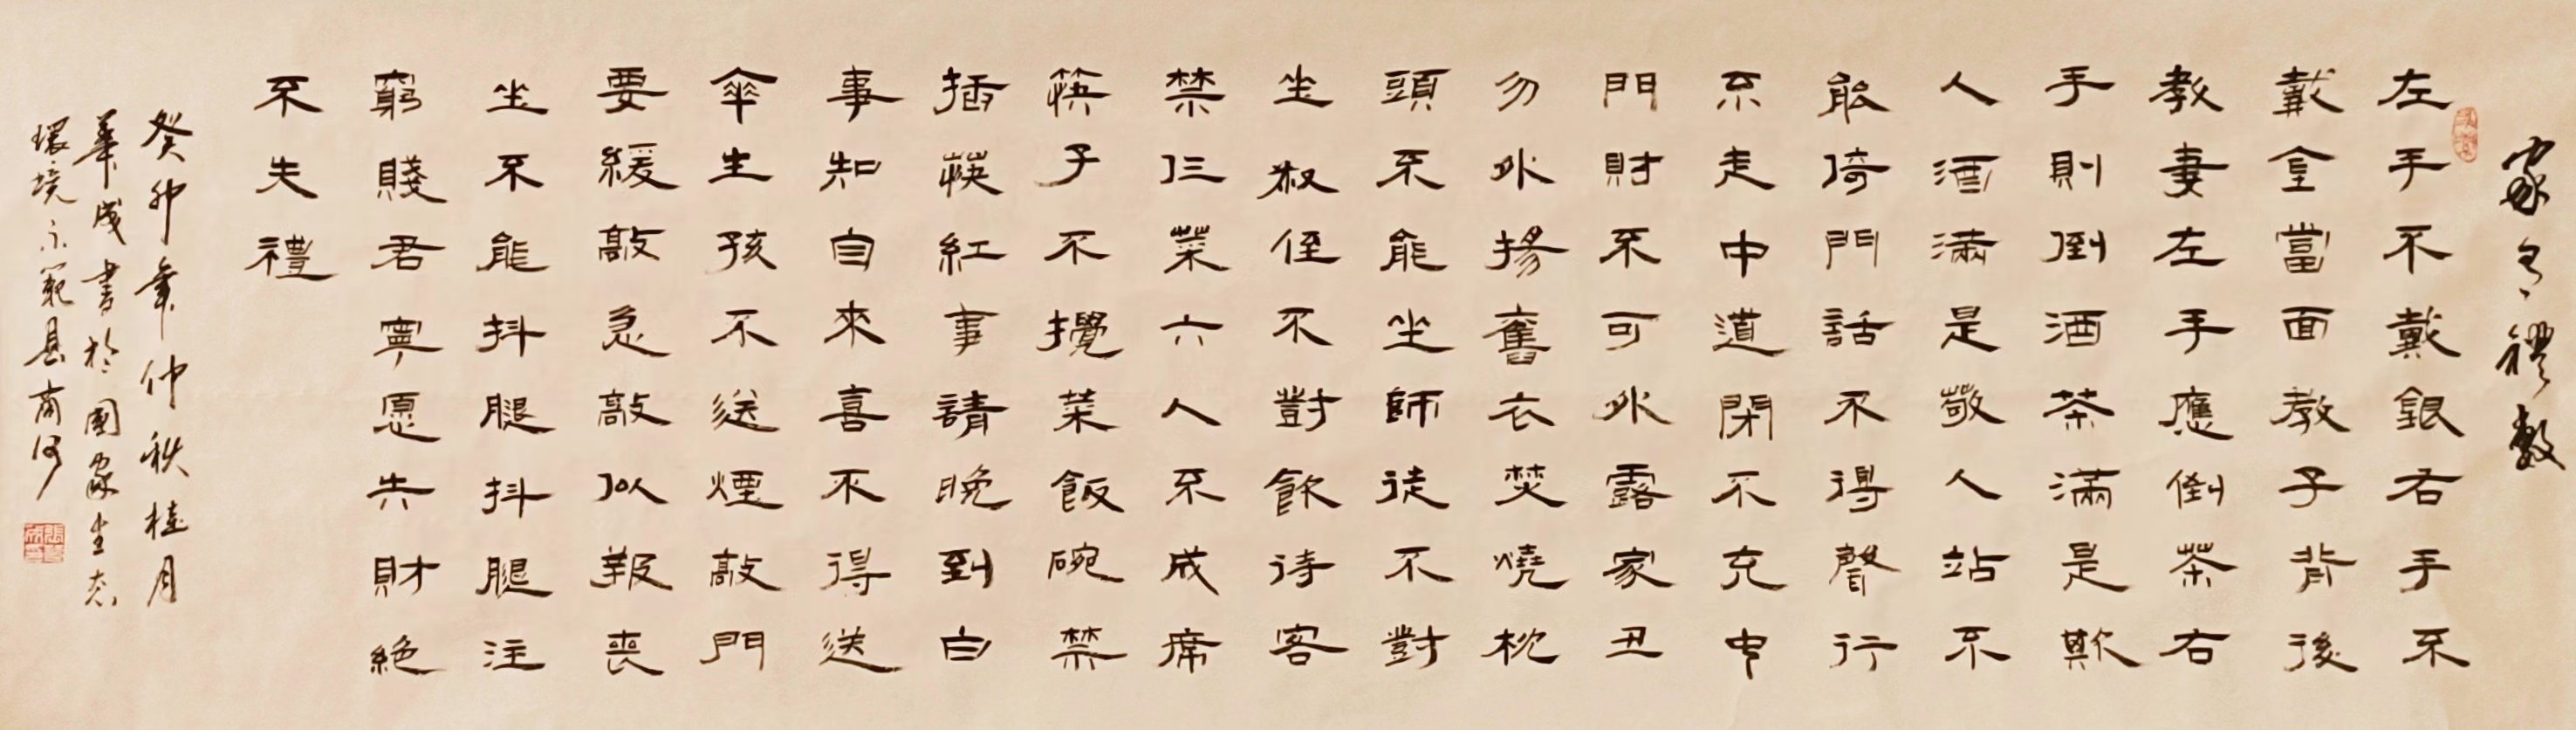 家有禮數
左手不戴銀右手不
戴金當面教子背後
教妻左手應倒茶右
手則倒酒茶滿是欺
人酒滿是敬人站不
能倚門話不得聲行
不走中道閑不充中
門財不可外露家丑
勿外揚舊衣焚燒枕
頭不能坐師徒不對
坐叔侄不對飲待客
禁仨菜六人不成席
筷子不攪菜飯碗禁
插筷紅事請晚到白
事知自來喜不得送
傘生孩不送煙敲門
要緩敲急敲似報喪
坐不能抖腿抖腿注
窮賤君寧愿共財絕
不失禮
癸卯年仲秋桂月
華成書於國家生态
環境示範县商河